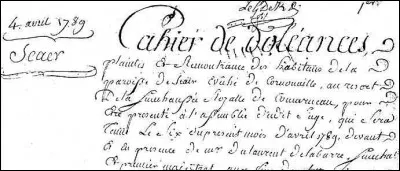 4. avril 1789
Scaer
Cahier de doléances
plaintes et Remontrances des habitans de la
paroisse de Scaër Evêché de Cornouaille, au ressort
de la Sénéchaussée Royalle de Concarneau, pour
être présenté à l'assemblée dudit siège, qui sera
tenue Le Six du présent mois d'avril 1789, devant
la présence de mr. du laurent de labarre, Sénéchal